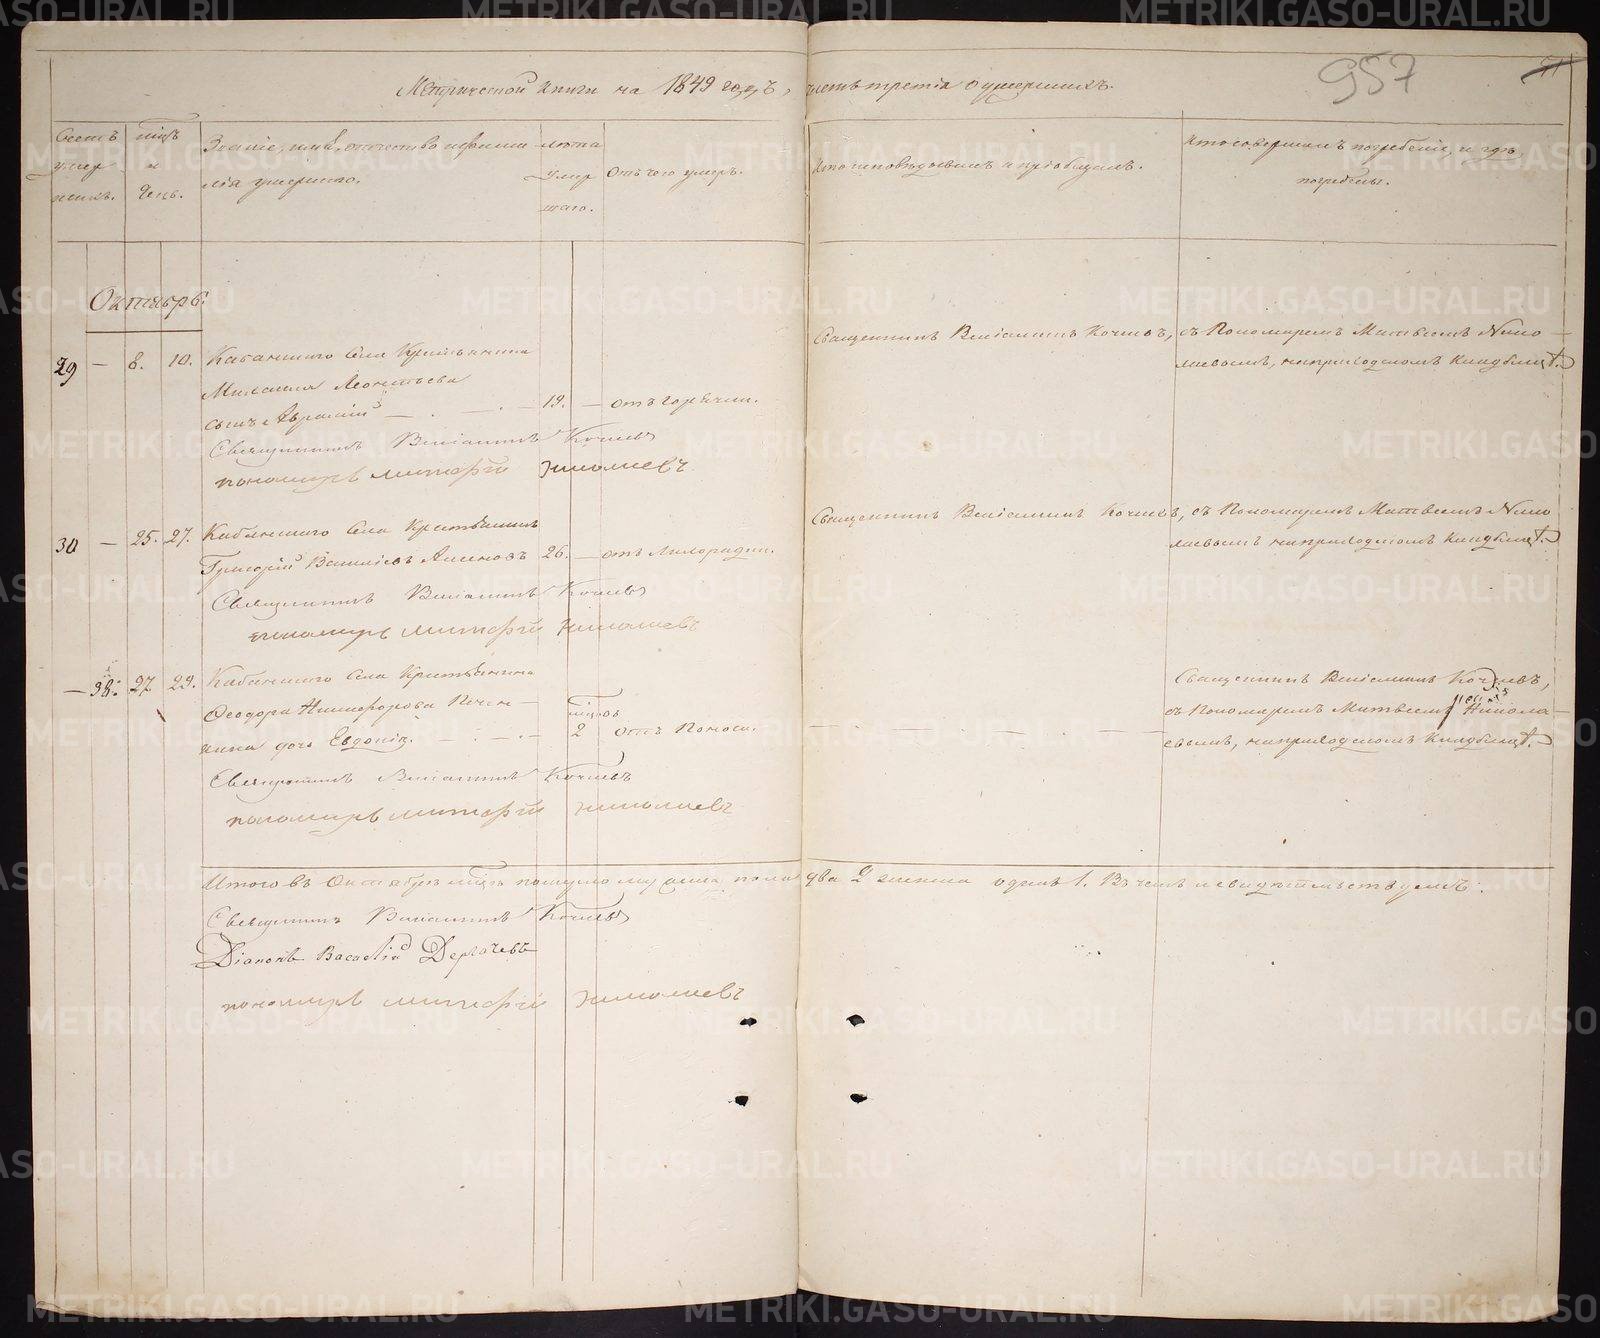 Метрической книги на 1849 годъ, часть третія о умершихъ.
957
Счетъ умершихъ.
мцъ и день.
Званіе, имя, отчество и фамилія умершаго.
лѣта умершаго.
Отъ чего умеръ.
Кто исповѣдывалъ и пріобщалъ.
Кто совершалъ погребеніе, и гдѣ погребены.
Октябрь.
29 — 8. 10. Кабанскаго Села Крестьянина
Михаила Леонтьева
сынъ Авраамій — 19. — отъ горячки.
Священникъ Веніаминъ Кочневъ,
съ Пономаремъ Матвеемъ Нико-
лаевымъ, на приходскомъ кладбищѣ.
Священникъ Веніаминъ Кочневъ
пономарь Матфей Николаевъ
30 — 25. 27. Кабанскаго Села Крестьянинъ
Григорій Василіевъ Аксеновъ 26. — отъ Лихорадки.
Священникъ Веніаминъ Кочневъ, съ Пономаремъ Матвеемъ Нико
лаевымъ на приходскомъ кладбищѣ.
Священникъ Веніаминъ Кочневъ
пономарь Матфей Николаевъ
— 38. 27 29. Кабанскаго Села Крестьянина
Феодора Никифорова
дочь Евдокія. — мцовъ 2 отъ Поноса.
Священникъ Веніаминъ Кочневъ,
съ Пономаремъ Матвеемъ Никола-
евымъ, на приходскомъ кладбищѣ.
Священникъ Веніаминъ Кочневъ
пономарь Матфей Николаевъ
Итого въ Октябрѣ мцѣ померло мужеска пола два 2 женска одинъ 1. Въ чемъ и свидѣтельствуемъ:
Священникъ Веніаминъ Кочневъ
Діаконъ Василій Дергачевъ
пономарь Матфей Николаевъ
METRIKI.GASO-URAL.RU